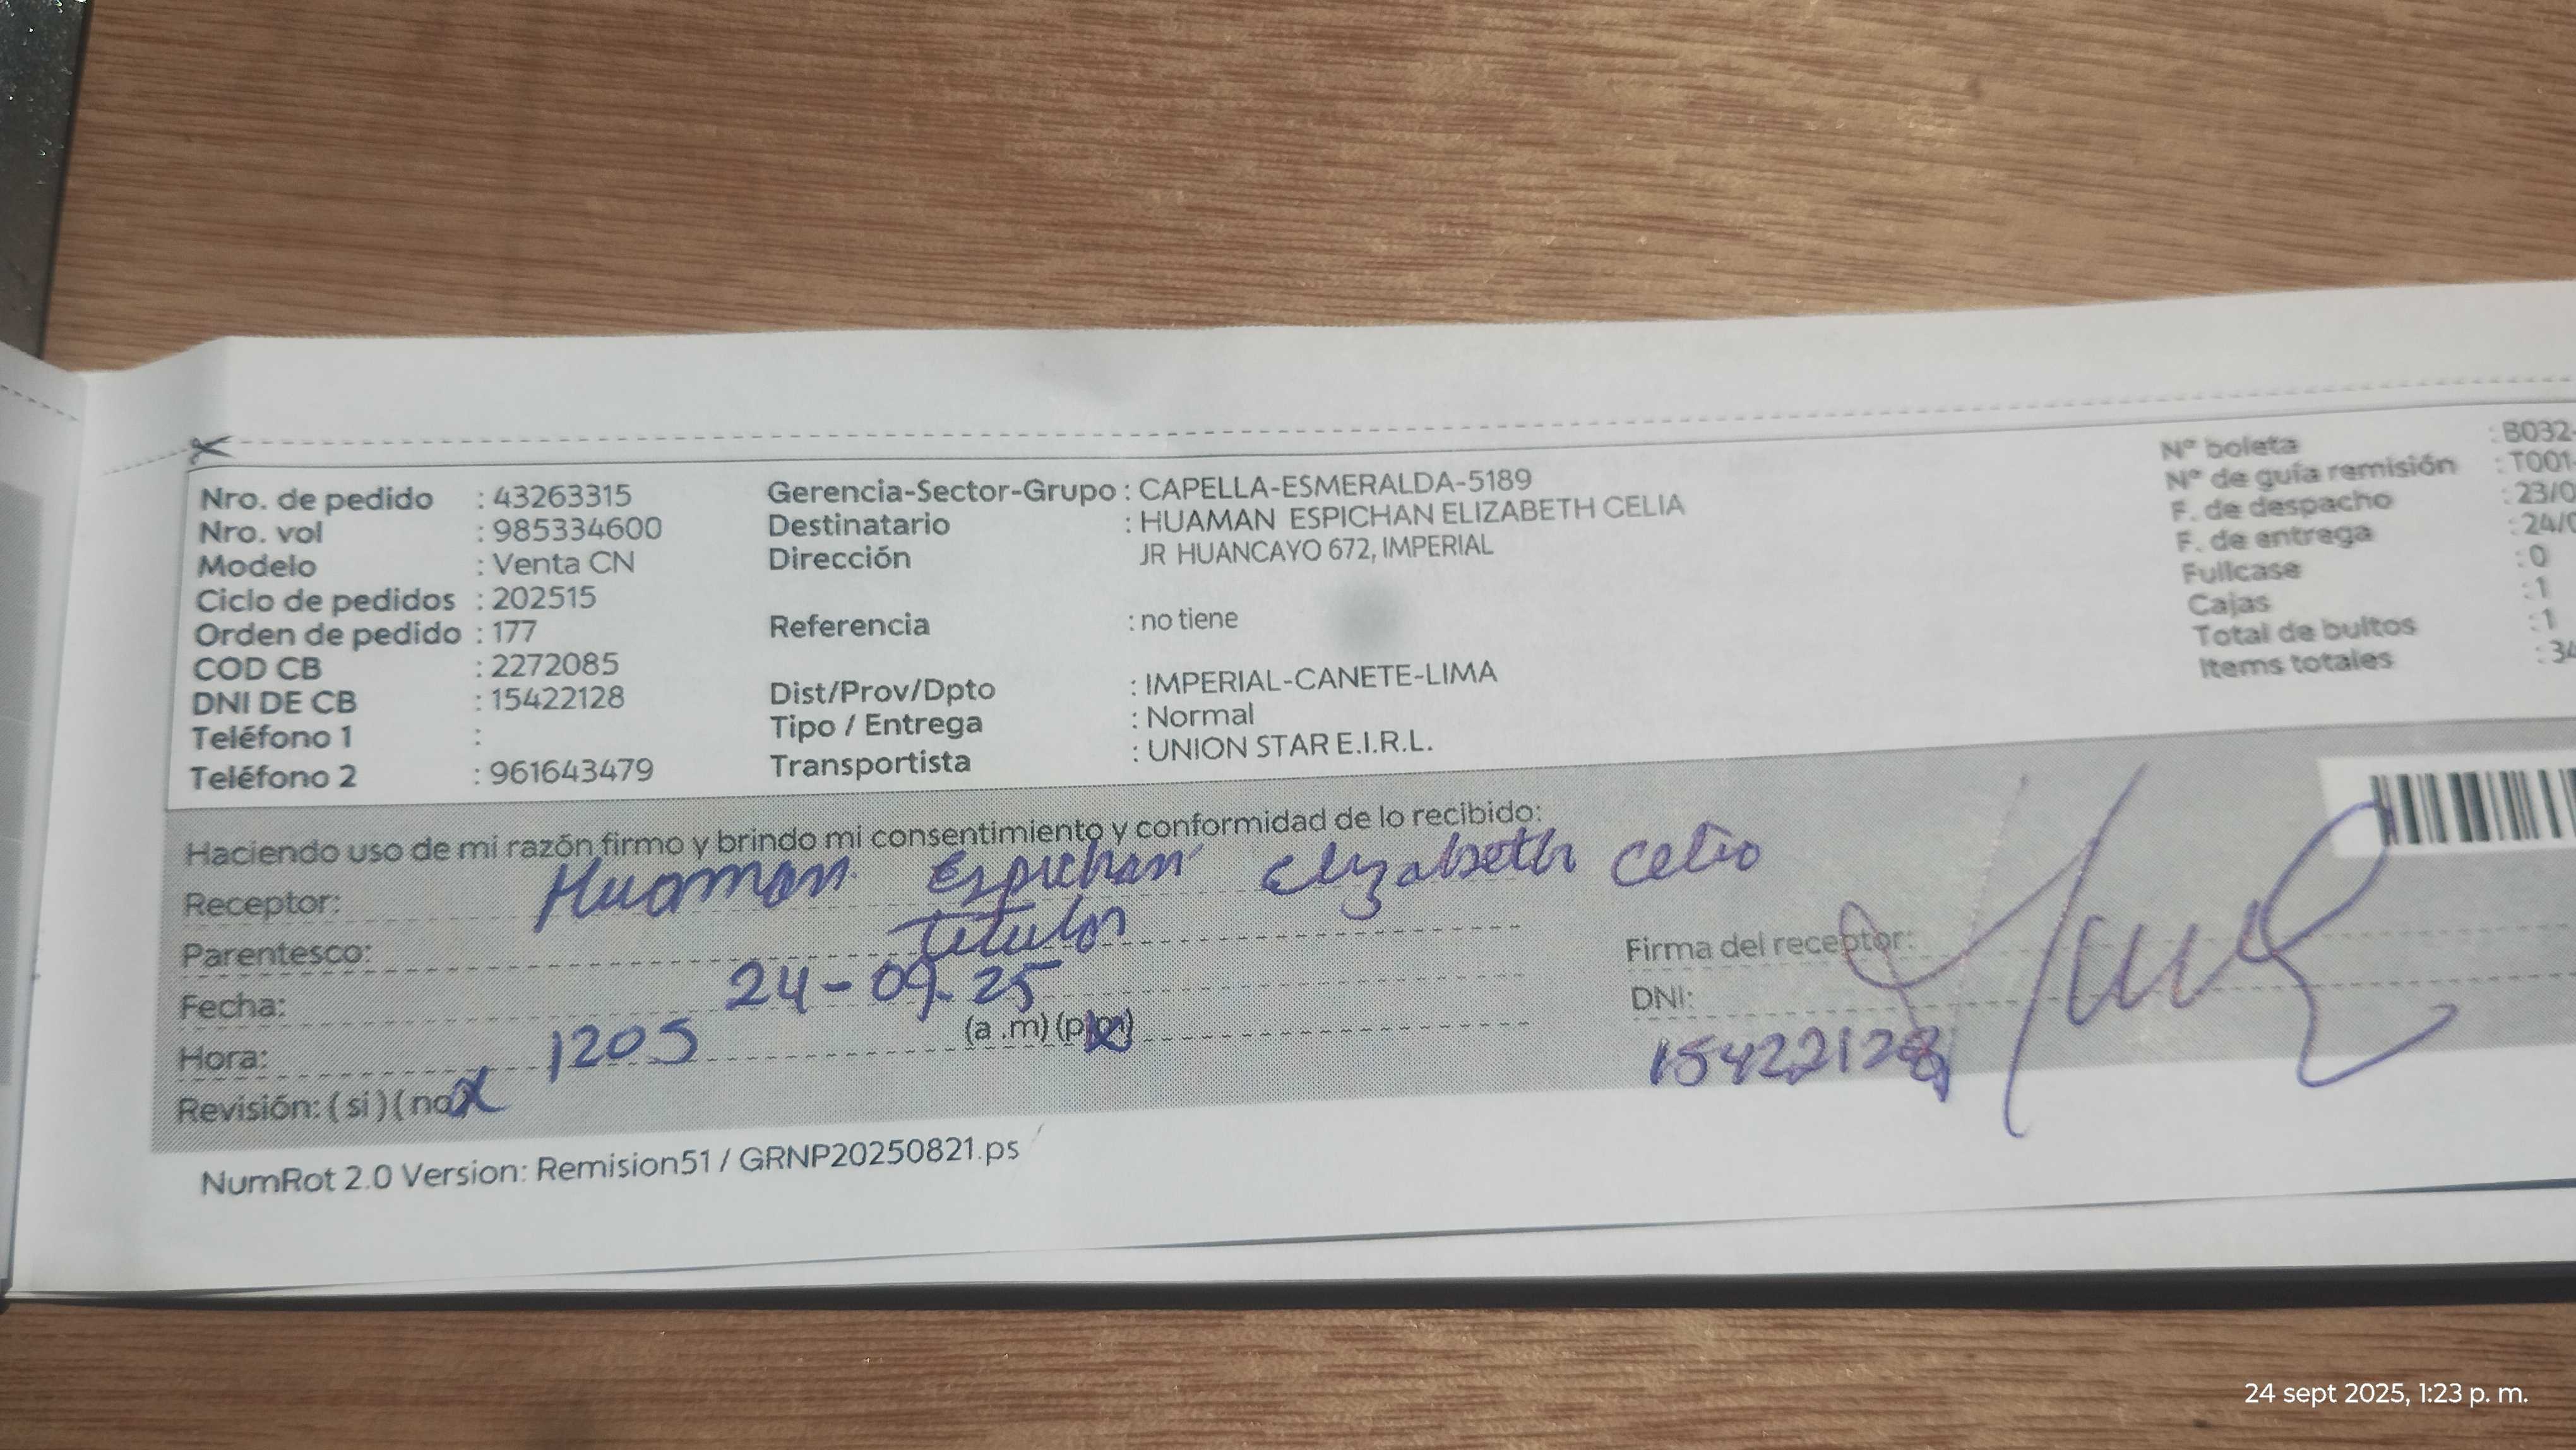 Nro. de pedido : 43263315
Nro. vol : 985334600
Modelo : Venta CN
Ciclo de pedidos : 202515
Orden de pedido : 177
COD CB : 2272085
DNI DE CB : 15422128
Teléfono 1 :
Teléfono 2 : 961643479
Gerencia-Sector-Grupo : CAPELLA-ESMERALDA-5189
Destinatario : HUAMAN ESPICHAN ELIZABETH CELIA
Dirección JR HUANCAYO 672, IMPERIAL
Referencia : no tiene
Dist/Prov/Dpto : IMPERIAL-CANETE-LIMA
Tipo / Entrega : Normal
Transportista : UNION STAR E.I.R.L.
Nº boleta : B032-
Nº de guía remisión : T001-
F. de despacho : 23/0
F. de entrega : 24/0
Fullcase : 0
Cajas : 1
Total de bultos : 1
Items totales : 34
Haciendo uso de mi razón firmo y brindo mi consentimiento y conformidad de lo recibido:
Receptor: Huaman Espichan Elizabeth Celia
Parentesco: Titular
Fecha: 24-09-25
Hora: 1205 (a .m) (p.m)
Revisión: ( si ) ( no x
Firma del receptor:
DNI:
15422128
NumRot 2.0 Version: Remision51 / GRNP20250821.ps
24 sept 2025, 1:23 p. m.